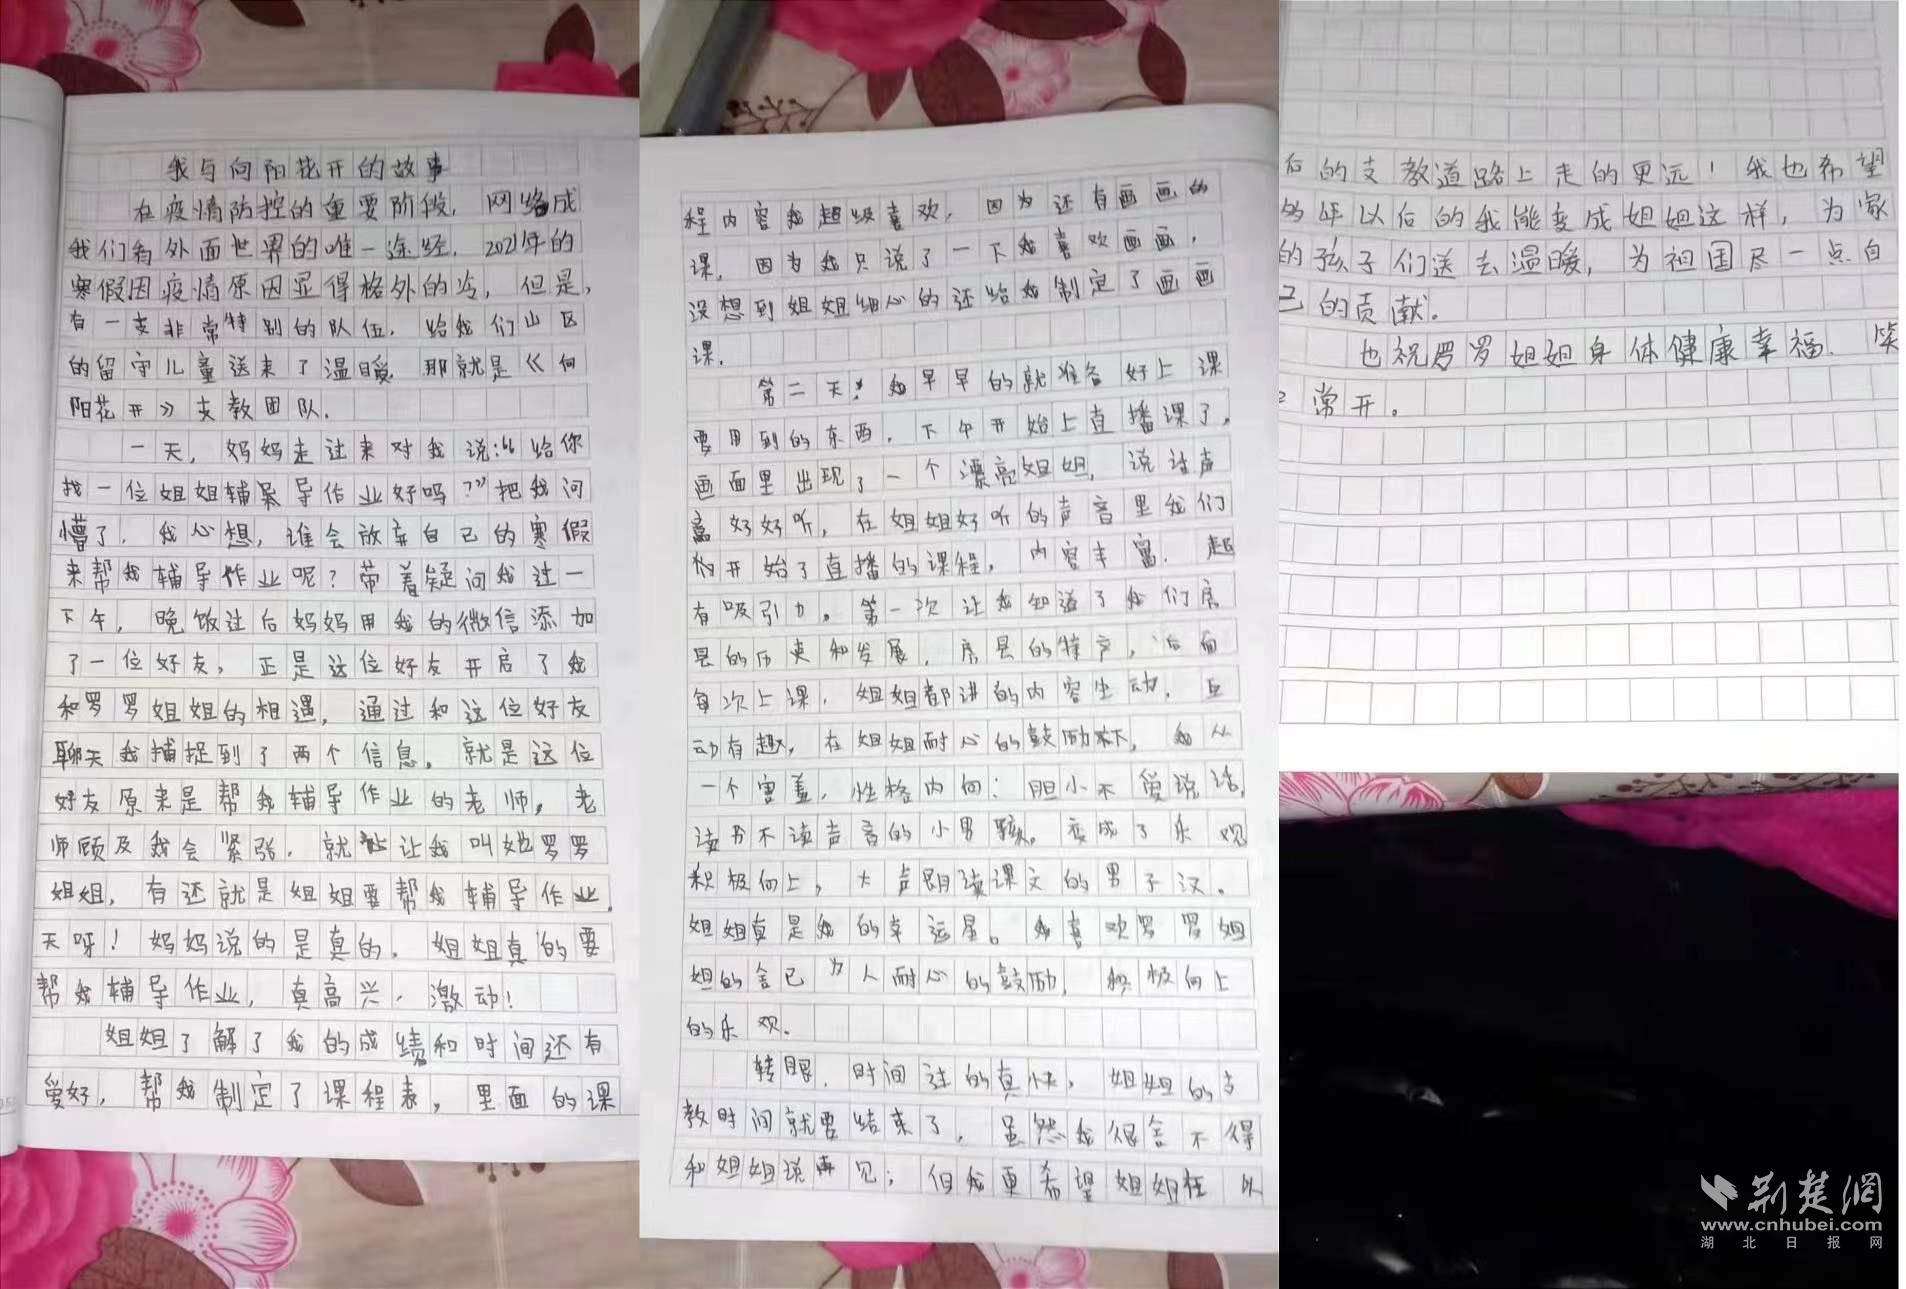 我与向阳花开的故事
在疫情防控的重要阶段，网络成
我们看外面世界的唯一途经，2021年的
寒假因疫情原因显得格外的冷，但是，
有一支非常特别的队伍，给我们山区
的留守儿童送来了温暖，那就是《向
阳花开》支教团队。
一天，妈妈走过来对我说：“给你
找一位姐姐辅导作业好吗？”把我问
懵了，我心想，谁会放弃自己的寒假
来帮我辅导作业呢？带着疑问我过一
下午，晚饭过后妈妈用我的微信添加
了一位好友，正是这位好友开启了我
和罗罗姐姐的相遇，通过和这位好友
聊天我捕捉到了两个信息。就是这位
好友原来是帮我辅导作业的老师，老
师顾及我会紧张，就让我叫她罗罗
姐姐，有还就是姐姐要帮我辅导作业。
天呀！妈妈说的是真的，姐姐真的要
帮我辅导作业，真高兴，激动！
姐姐了解了我的成绩和时间还有
爱好，帮我制定了课程表，里面的课
程内容我超级喜欢，因为还有画画的
课，因为我只说了一下我喜欢画画，
没想到姐姐细心的还给我制定了画画
课。
第二天！我早早的就准备好上课
要用到的东西，下午开始上直播课了，
画面里出现了一个漂亮姐姐，说话声
音好好听，在姐姐好听的声音里我们
开始了直播的课程，内容丰富，超
有吸引力。第一次让我知道了我们房
县的历史和发展，房县的特产，后面
每次上课，姐姐都讲的内容生动，互
动有趣，在姐姐耐心的鼓励下，我从
一个害羞，性格内向；胆小不爱说话，
读书不读声音的小男孩。变成了乐观
积极向上，大声朗读课文的男子汉。
姐姐真是我的幸运星。我喜欢罗罗姐
姐的舍已为人耐心的鼓励，积极向上
的乐观。
转眼，时间过的真快，姐姐的支
教时间就要结束了，虽然我很舍不得
和姐姐说再见；但我更希望姐姐在以
后的支教道路上走的更远！我也希望
多年以后的我能变成姐姐这样，为家
的孩子们送去温暖，为祖国尽一点自
己的贡献。
也祝罗罗姐姐身体健康幸福、笑
常开。
荆楚网
www.cnhubei.com
湖北日报网